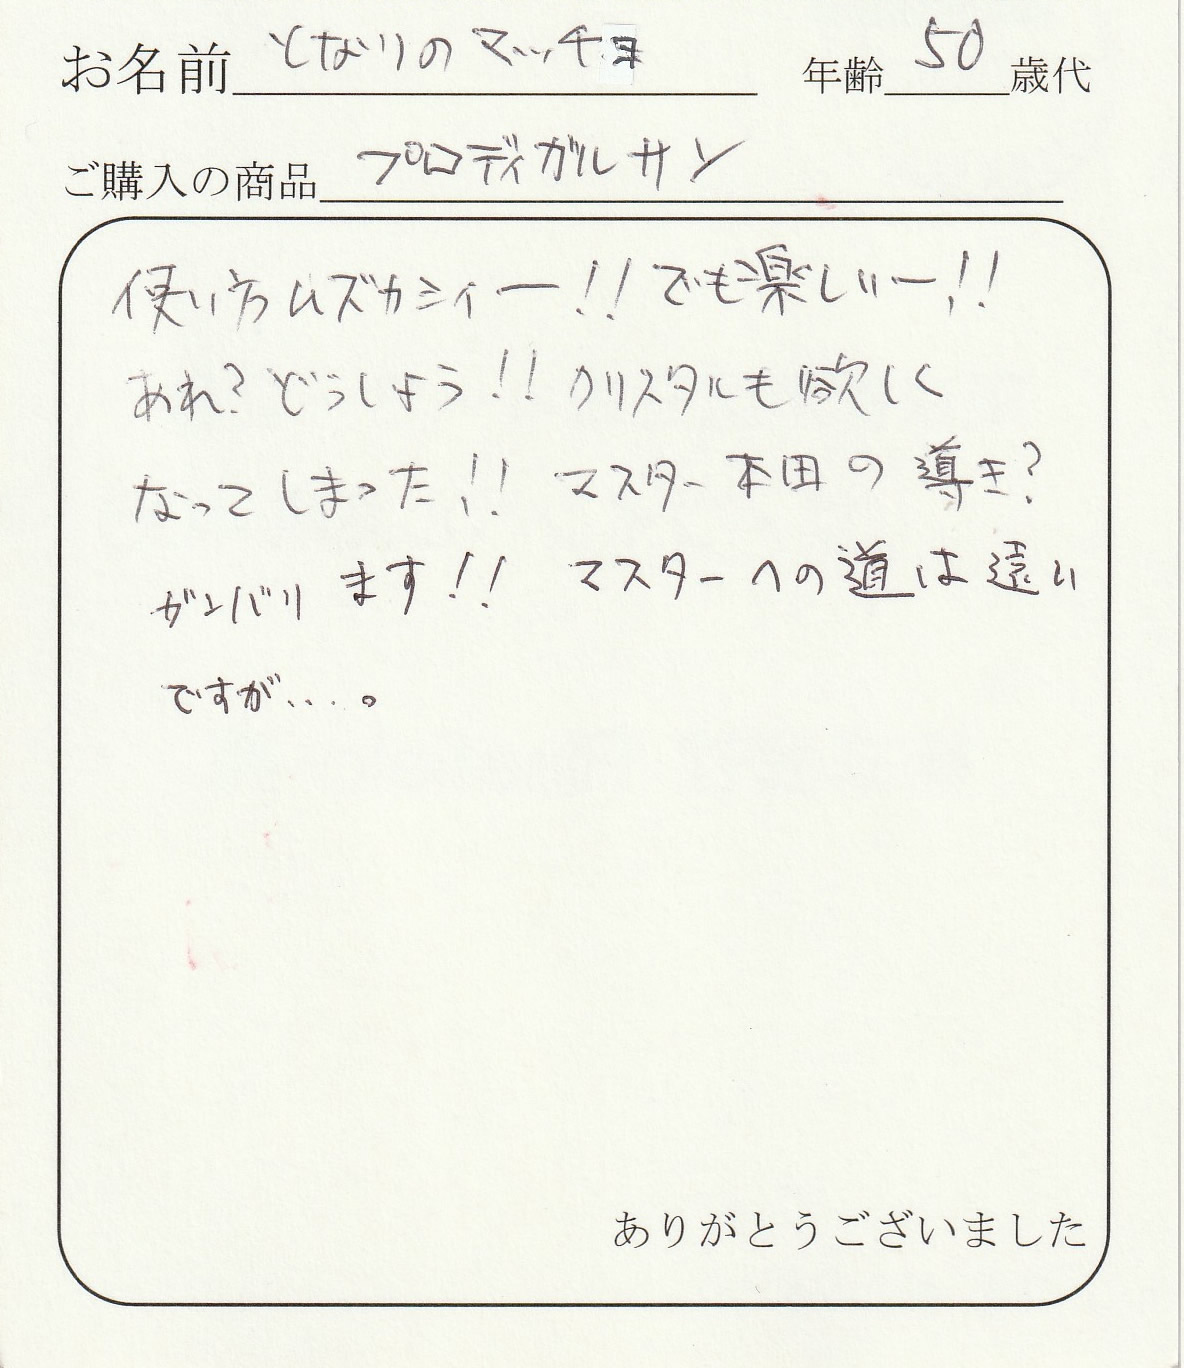 お名前 となりのマッチョ 年齢 50 歳代
ご購入の商品 プロディガルサン
使い方ムズカシィー!! でも楽しいー!!
あれ? どうしよう!! クリスタルも欲しく
なってしまった!! マスター本田の導き?
ガンバリます!! マスターへの道は遠い
ですが....。
ありがとうございました